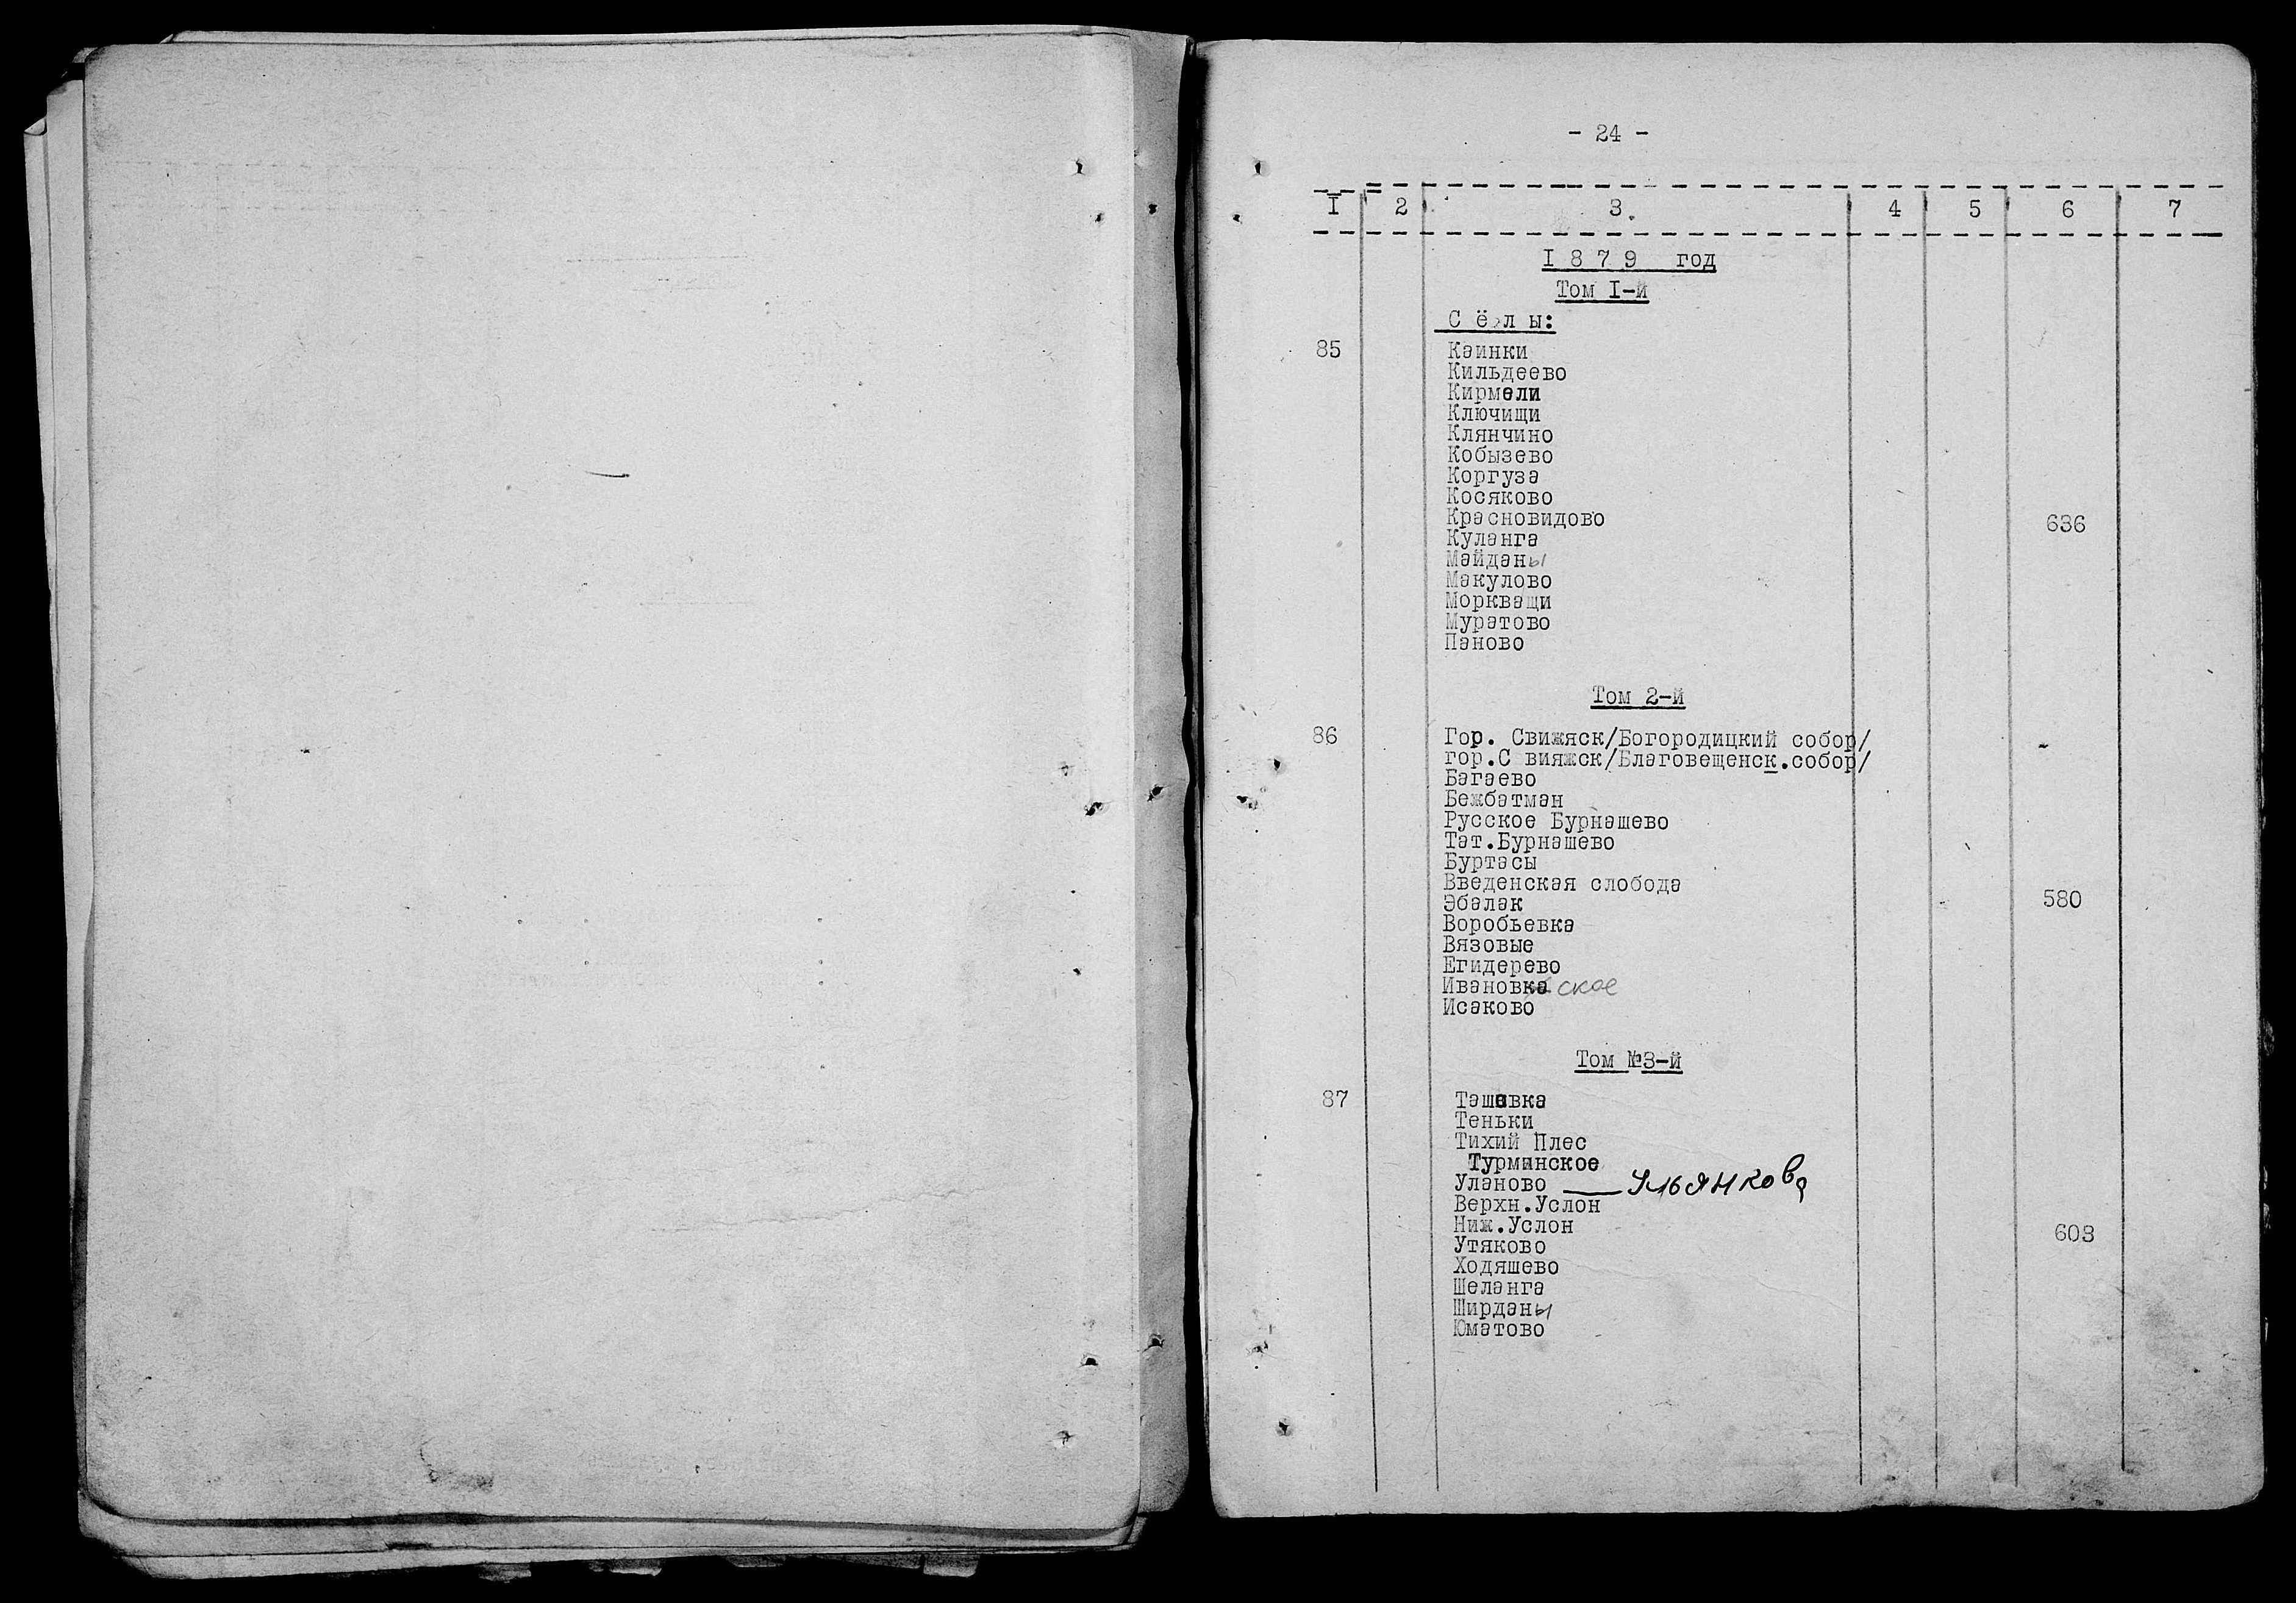 - 24 -
I 2 3. 4 5 6 7
I 8 7 9 год
Том I-й
С ё л ы:
85 Каинки
Кильдеево
Кирмели
Ключищи
Клянчино
Кобызево
Коргуза
Косяково
Красновидово 636
Куланга
Майданы
Макулово
Моркващи
Муратово
Паново
Том 2-й
86 Гор. Свижяск/Богородицкий собор/
гор.С вияжск/Благовещенск.собор/
Багаево
Бежбатман
Русское Бурнашево
Тат.Бурнашево
Буртасы
Введенская слобода
Эбалак 580
Воробьевка
Вязовые
Егидерево
Ивановка ское
Исаково
Том №3-й
87 Ташевка
Теньки
Тихий Плес
Турминское
Уланово — Ульянково
Верхн.Услон
Ниж.Услон 603
Утяково
Ходяшево
Шеланга
Ширданы
Юматово